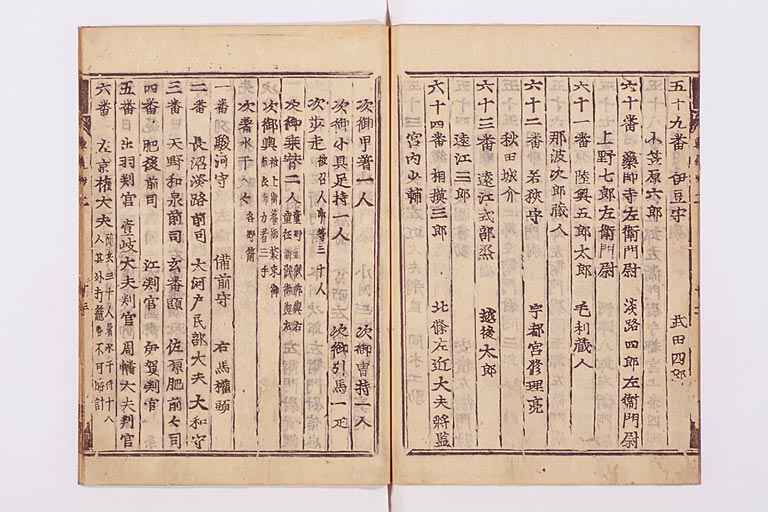 五十九番 伊豆守 武田四郎
小笠原六郎
六十番 藥師寺左衛門尉 淡路四郎左衛門尉
上野七郎左衛門尉
六十一番 陸奥五郎太郎 毛利藏人
那波次郎藏人
六十二番 若狹守 宇都宮修理亮
秋田城介
六十三番 遠江式部丞 越後太郎
遠江三郎
六十四番 相摸三郎 北條左近大夫將監
宮内少輔
次御甲著一人 次御冑持一人
次御小具足持一人 次御引馬一疋
次歩走 被召人 三十人
次御乘替二人
次御輿
次善水干人々 各野箭
一番 駿河守 備前守 右馬權頭
二番 長沼淡路前司 大河戸民部大夫 大和守
三番 天野和泉前司 玄番頭 佐原肥前々司
四番 肥後前司 江判官 伊賀判官
五番 出羽判官 壹岐大夫判官 周幡大夫判官
六番 左京權大夫